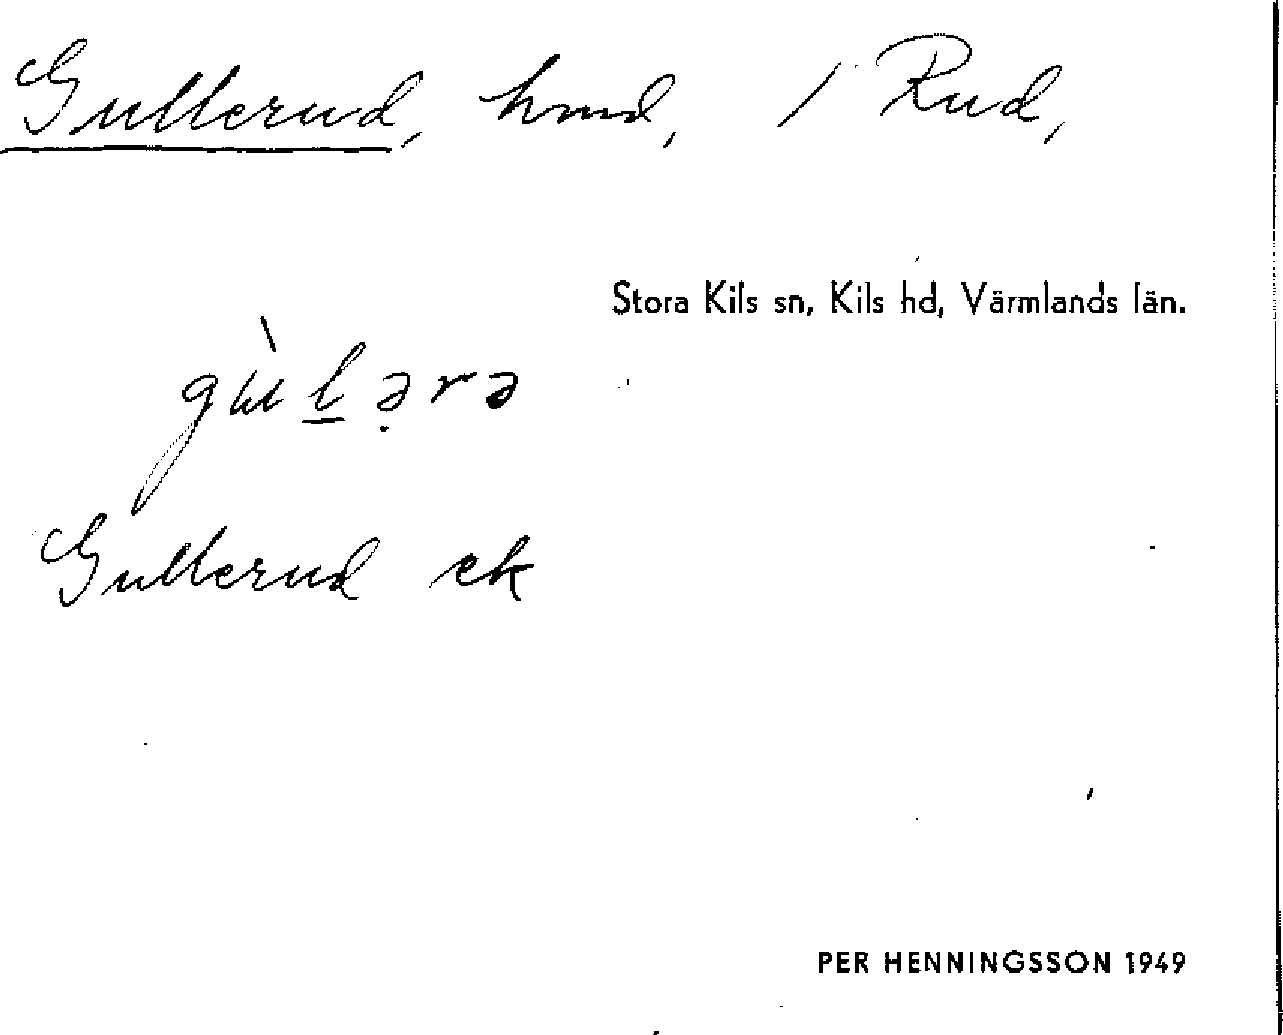 Gullerud, hmd, / Rud,
Stora Kils sn, Kils hd, Värmlands län.
gùl̲ə̣rə
Gullerud ek
PER HENNINGSSON 1949